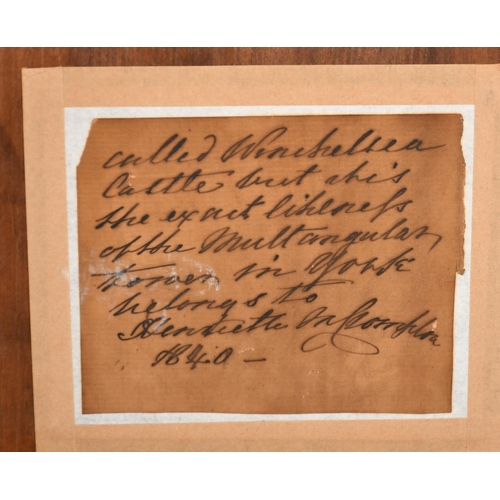 called Winchelsea
Castle but this
the exact likeness
of the Multangular
tower in York
belongs to
Henrietta M Crompton
1840 –